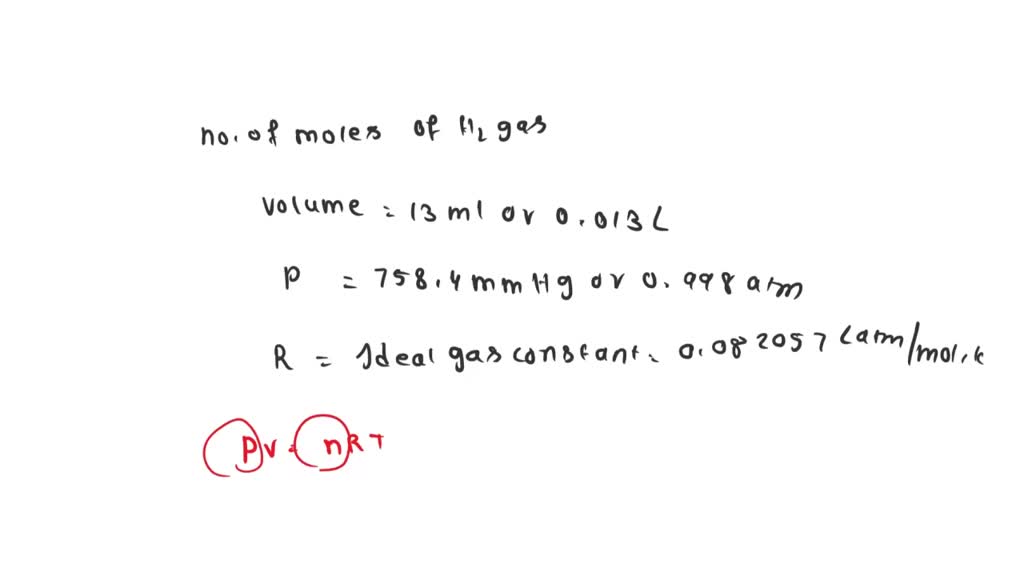 no. of moles of H₂ gas
volume = 13 ml or 0.013 L
P = 758.4 mm Hg or 0.998 atm
R = Ideal gas constant = 0.082057 Latm/mol.k
PV = nRT